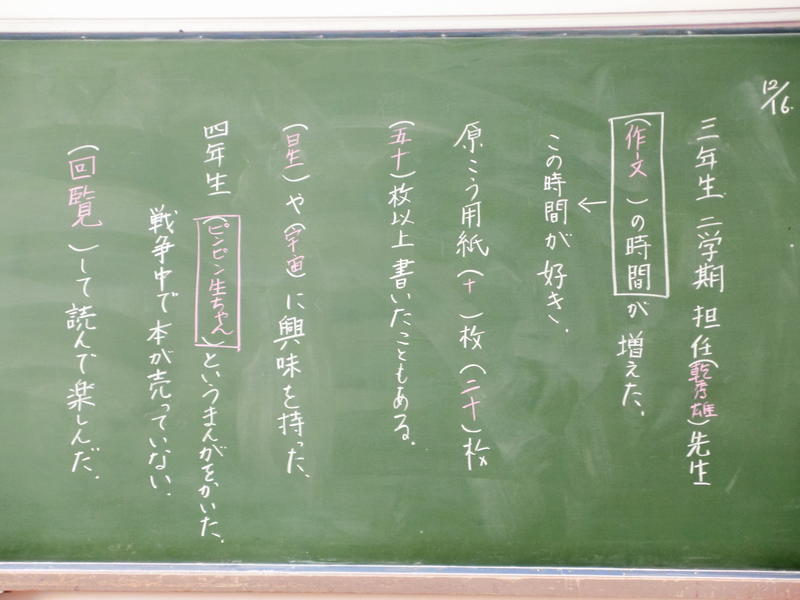 12/16.
三年生 二学期 担任(乾秀雄)先生
(作文)の時間が 増えた。
←
この時間が 好き。
原こう用紙(十)枚(二十)枚
(五十)枚以上 書いたこともある。
(星)や(宇宙)に興味を持った。
四年生 (ピンピン生ちゃん)というまんがをかいた。
戦争中で本が売っていない。
(回覧)して読んで楽しんだ。